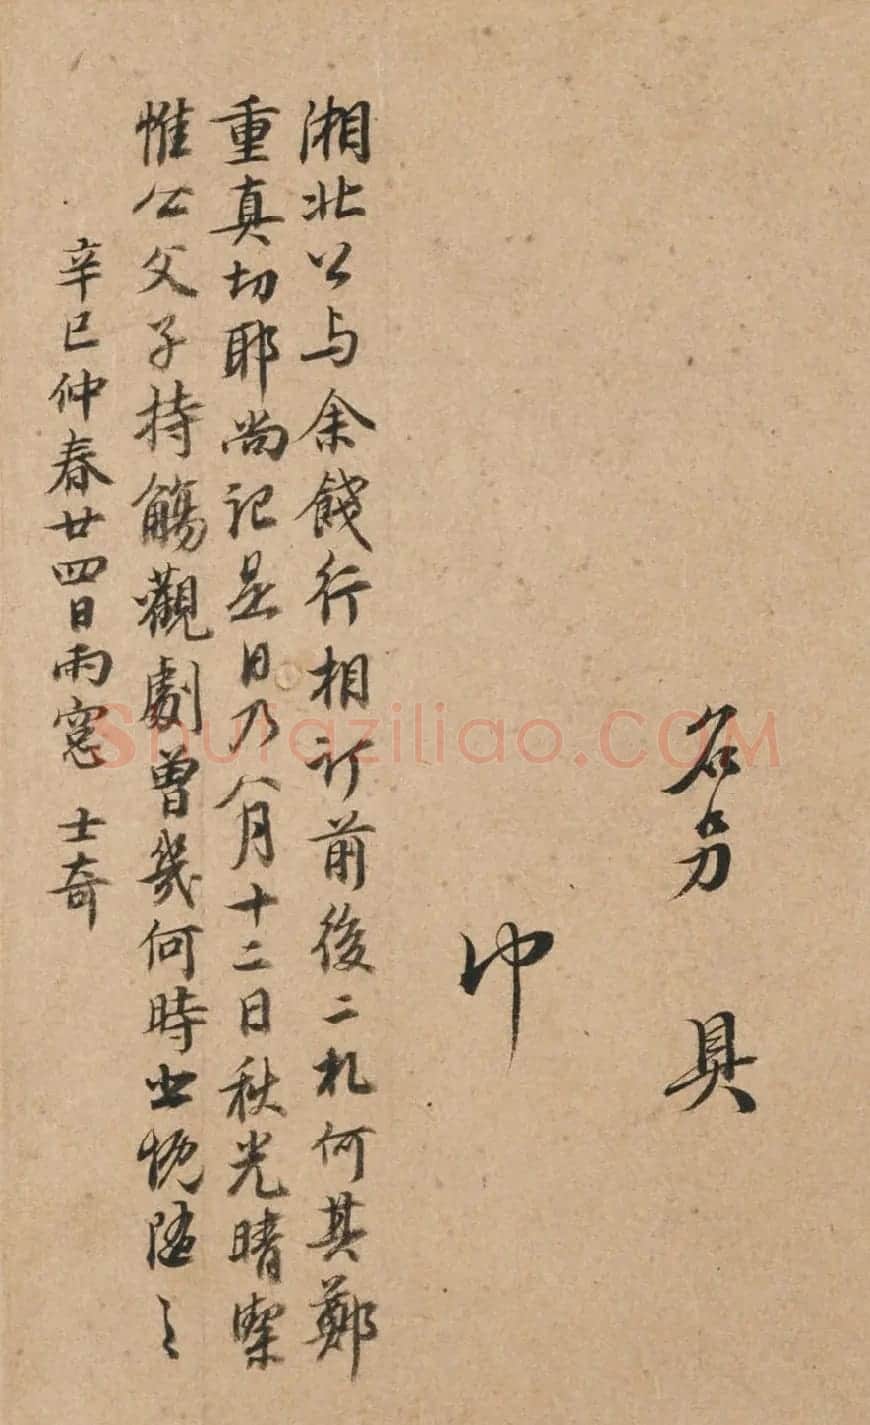 名另具
湘北公与余餞行相訂前後二札何其鄭
重真切耶尚記是日乃八月十二日秋光晴
惟公父子持觴觀劇曾幾何時
辛巳仲春廿四日雨窓 士奇
Shufaziliao.COM